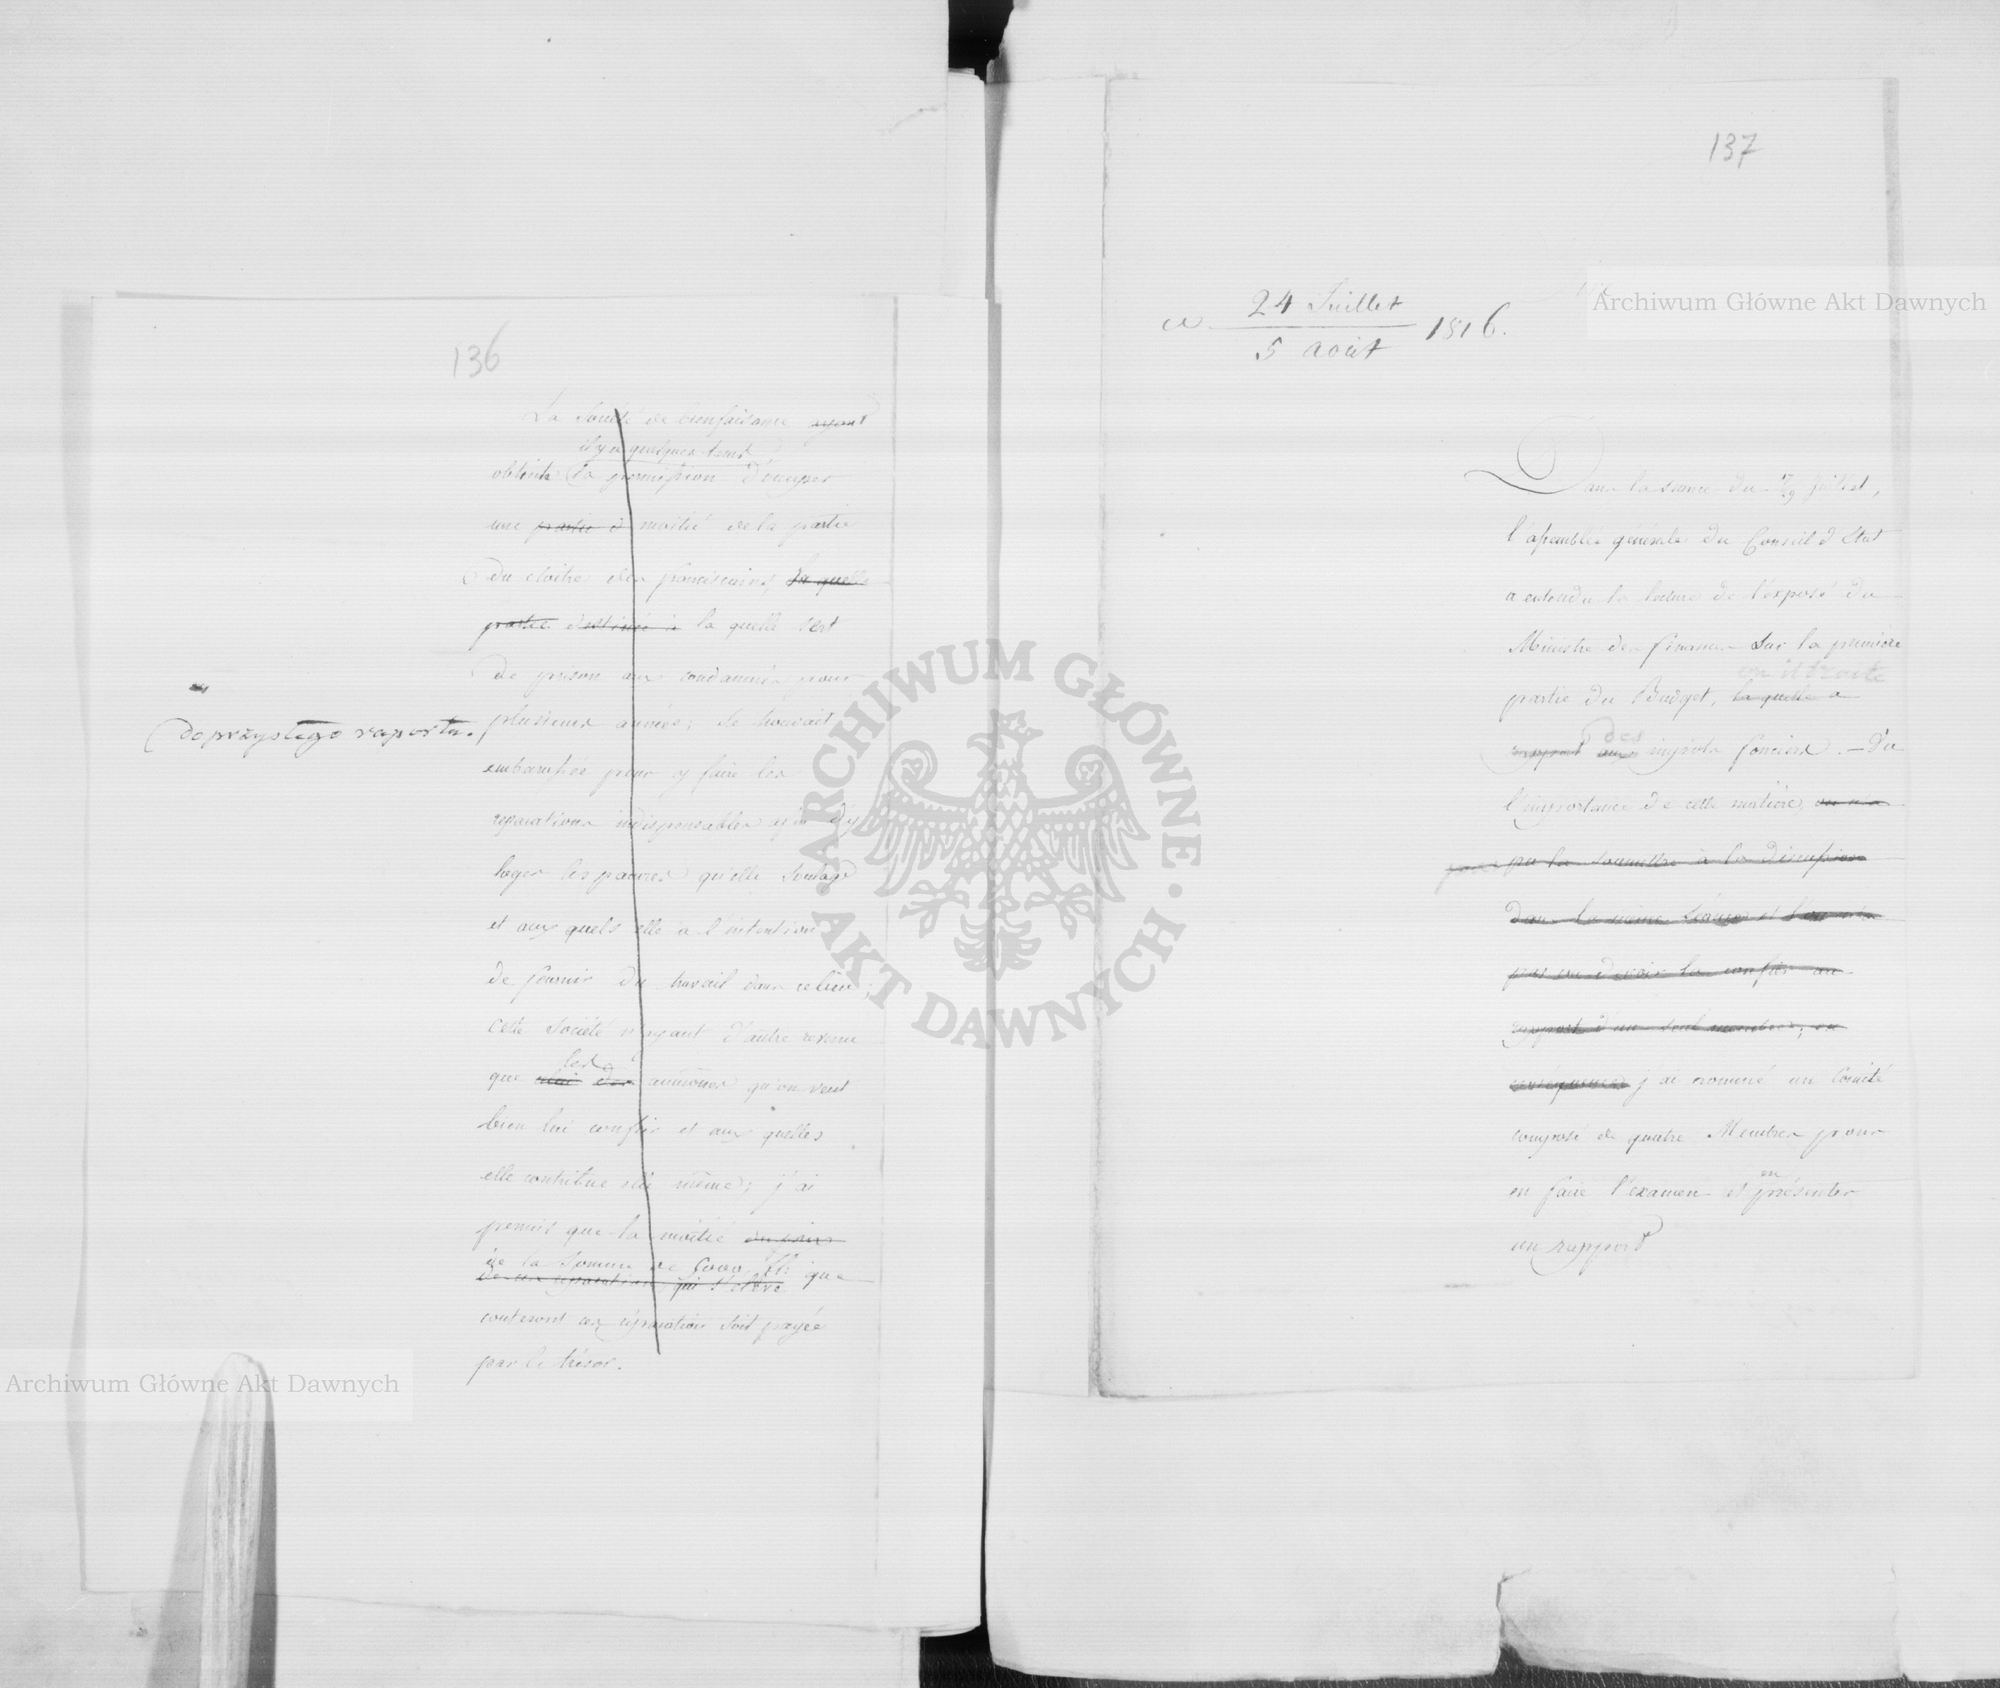 136
La Société de bienfaisance ayant
il y a quelques tems
obtenu la permission d'occuper
une partie à moitié de la partie
du cloitre des franciscains la quelle
partie destinée à la quelle sert
de prison aux condamnés pour
plusieurs années; se trouvait
embarassée pour y faire les
reparations indispensables afin d'y
loger les pauvres qu'elle soulage
et aux quels elle a l'intention
de fournir du travail dans ce lieu;
cette Société n'ayant d'autre revenu
les
que celui des aumônes qu'on veut
bien lui confier et aux quelles
elle contribue elle même; j'ai
permis que la moitié
de la Somme de 6000 fl: que
de ces reparations qui s'élève
couteront ces réparations soit payée
par le trésor.
do przyszłego raportu.
137
ce 24 Juillet
5 Août 1816.
Dans la séance du 17/29 Juillet,
l'assemblée générale du Conseil d'Etat
a entendu la lecture de l'exposé du
Ministre des finances sur la première
où il traite
partie du Budget, la quelle a
des
rapport aux impôts fonciers. – Vu
l'importance de cette matière, on n'a
pas pu la soumettre à la discussion
dans la même séance et l'on n'a
pas cru devoir la confier au
rapport d'un seul membre; en
consequence j'ai nommé un Comité
composé de quatre Membres pour
en
en faire l'examen et présenter
un rapport
Archiwum Główne Akt Dawnych
Archiwum Główne Akt Dawnych
ARCHIWUM GŁÓWNE · AKT DAWNYCH ·